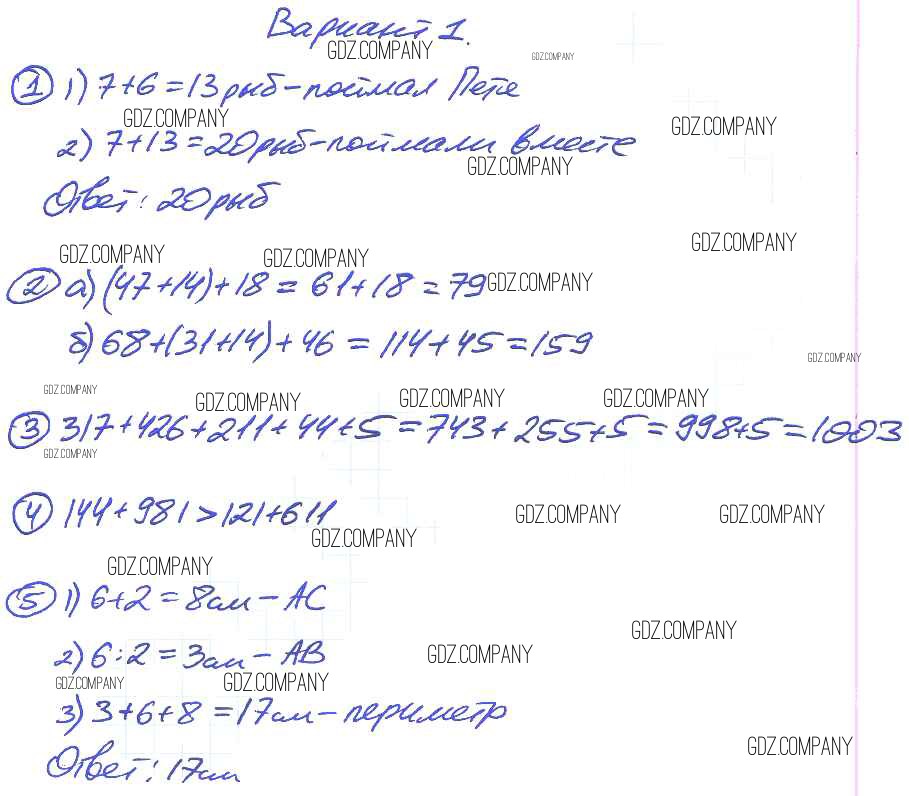 Вариант 1.
GDZ.COMPANY
GDZ.COMPANY
① 1) 7+6=13 рыб-поймал Петя
GDZ.COMPANY
GDZ.COMPANY
2) 7+13=20 рыб-поймали вместе
GDZ.COMPANY
Ответ: 20 рыб
GDZ.COMPANY
GDZ.COMPANY
GDZ.COMPANY
② а) (47+14)+18 = 61+18 = 79
GDZ.COMPANY
б) 68+(31+14)+46 = 114+45=159
GDZ.COMPANY
GDZ.COMPANY
GDZ.COMPANY
GDZ.COMPANY
GDZ.COMPANY
③ 317+426+211+44+5=743+255+5=998+5=1003
GDZ.COMPANY
④ 144+981>121+611
GDZ.COMPANY
GDZ.COMPANY
GDZ.COMPANY
GDZ.COMPANY
⑤ 1) 6+2=8см-АС
GDZ.COMPANY
2) 6:2=3см-АВ
GDZ.COMPANY
GDZ.COMPANY
GDZ.COMPANY
3) 3+6+8=17см-периметр
GDZ.COMPANY
Ответ: 17см